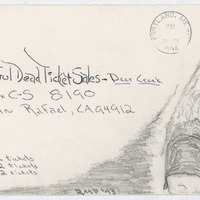 PORTLAND, MA
PM
ful Dead Ticket Sales - Deer Creek
x C-S 8190
n Rafael, CA 94912
tickets
2 tickets
2 tickets
RMP '93